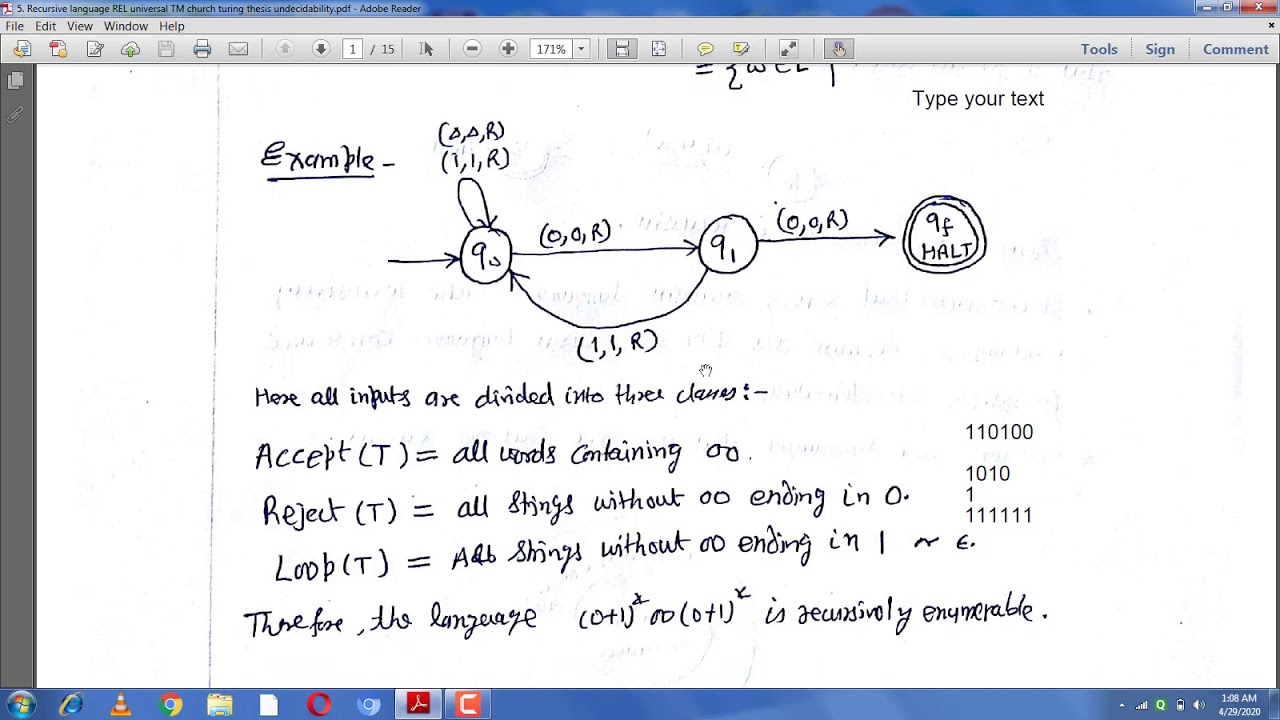 5. Recursive language REL universal TM church turing thesis undecidability.pdf - Adobe Reader
File Edit View Window Help
1 / 15 171% Tools Sign Comment
= {w∈L |
Type your text
Example -
(Δ,Δ,R)
(1,1,R)
(0,0,R)
(0,0,R)
q0
q1
qf
HALT
(1,1,R)
Here all inputs are divided into three classes:-
Accept(T) = all words containing 00.
110100
Reject(T) = all Stings without 00 ending in 0.
1010
1
111111
Loop(T) = All Stings without 00 ending in 1 or ε.
Therefore, the language (0+1)* 00 (0+1)* is recursivly enumerable.
1:08 AM
4/29/2020